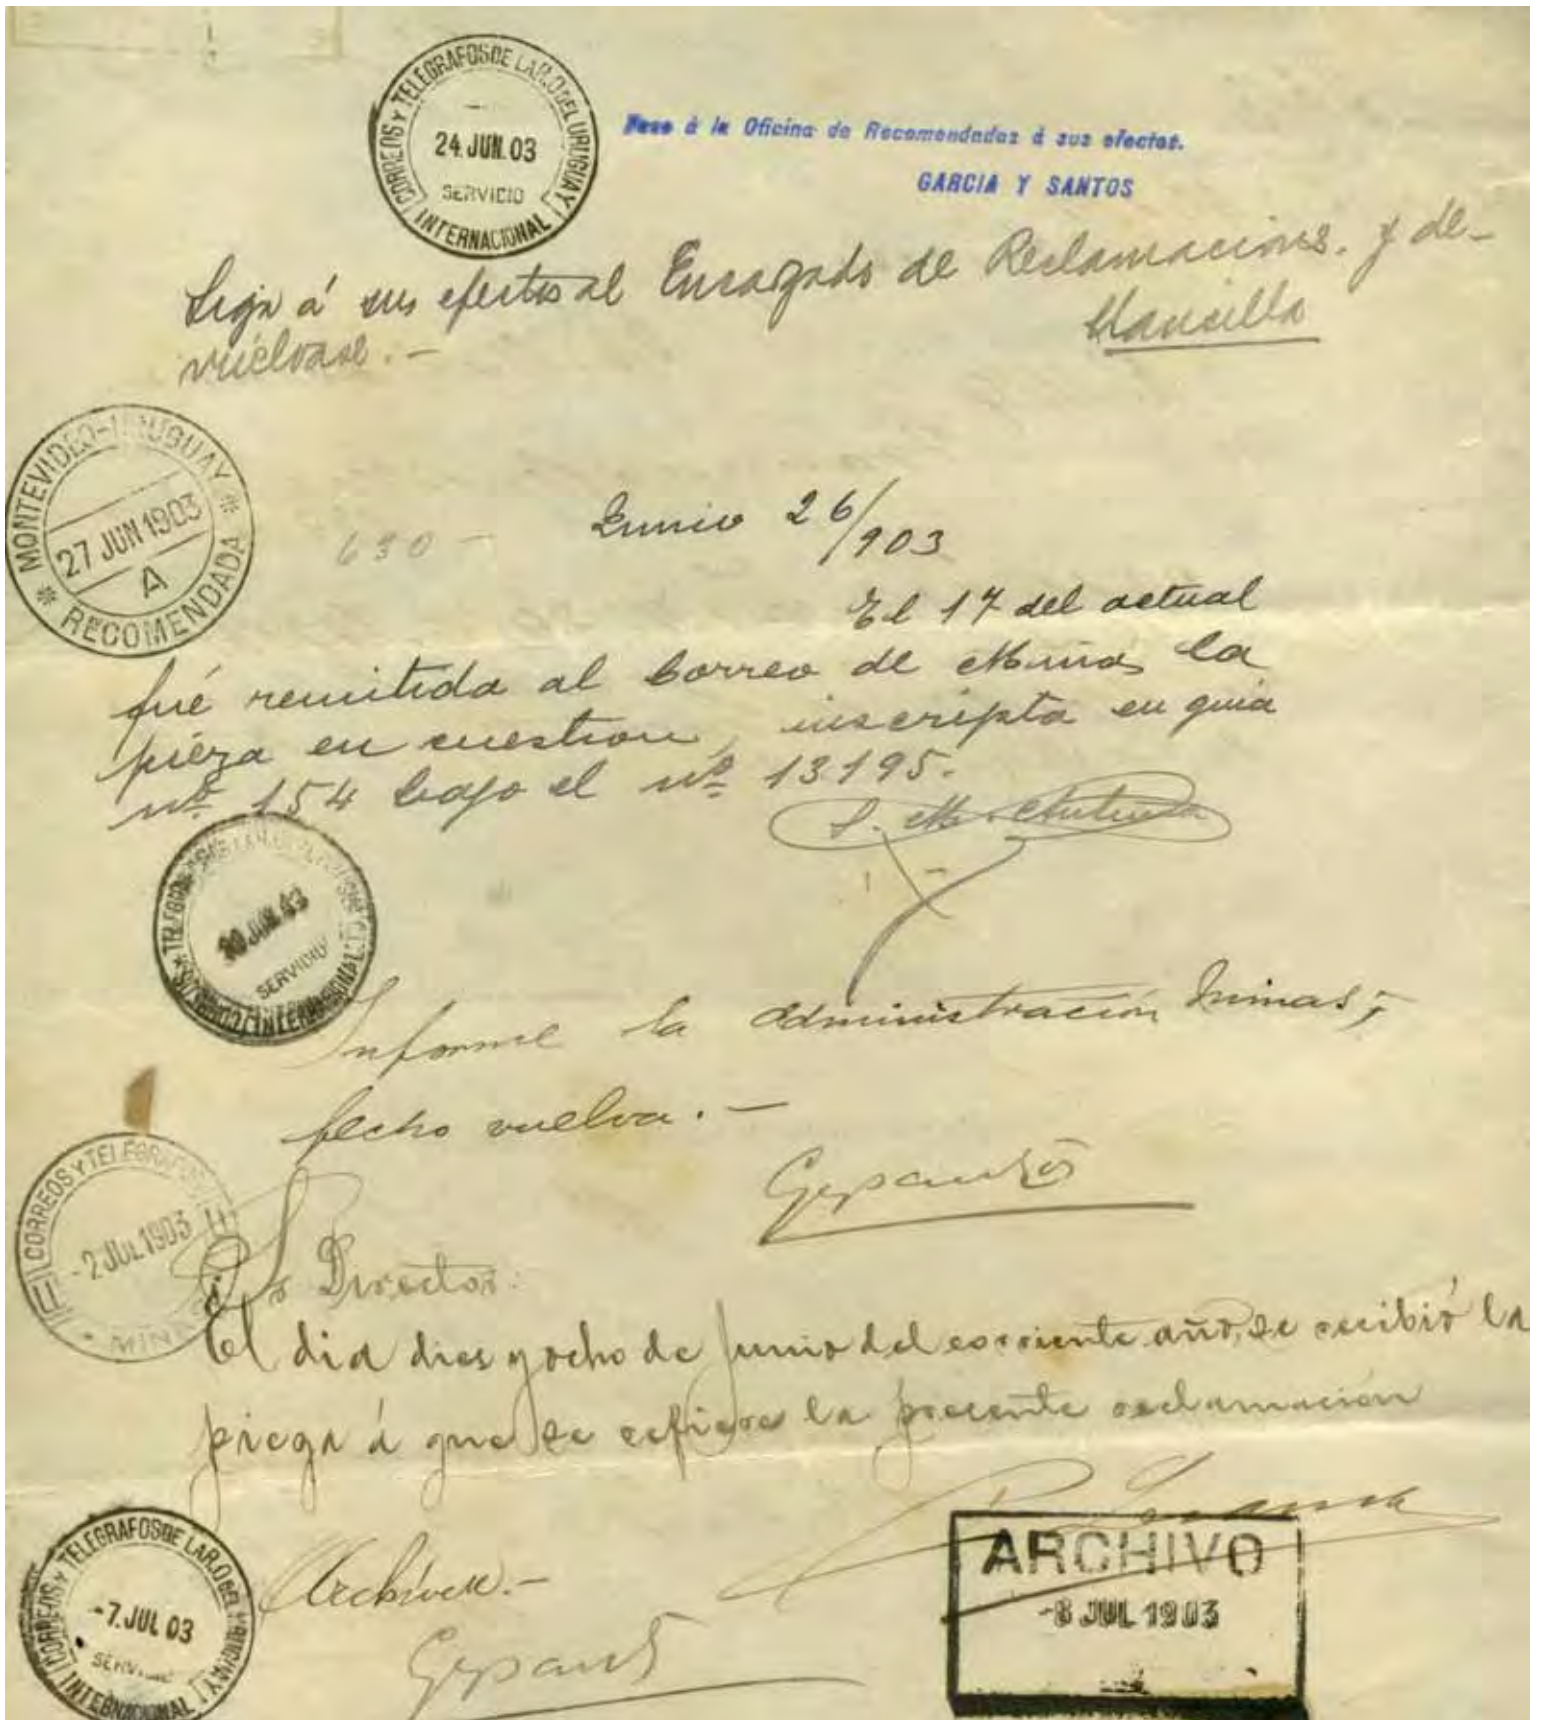 CORREOS Y TELEGRAFOS DE LA R.O. DEL URUGUAY
24 JUN. 03
SERVICIO
INTERNACIONAL
Pase á la Oficina de Recomendadas á sus efectos.
GARCIA Y SANTOS
Siga á sus efectos al Encargado de Reclamaciones. y de-
vuélvase.-
Mancilla
MONTEVIDEO-URUGUAY
27 JUN 1903
A
RECOMENDADA
630-
Junio 26/903
El 17 del actual
fué remitida al Correo de Minas la
pieza en cuestion, inscripta en guia
nº 154 bajo el nº 13195.
30 JUN 03
SERVICIO
INTERNACIONAL
Informe la Administración Minas;-
fecho vuelva.-
CORREOS Y TELEGRAFOS
-2 JUL 1903
MINAS
Sr Director:
El dia dies y ocho de Junio del corriente año, se recibió la
pieza á que se refiere la presente reclamación
CORREOS Y TELEGRAFOS DE LA R.O. DEL URUGUAY
-7. JUL 03
SERVICIO
INTERNACIONAL
Archívese.-
ARCHIVO
-8 JUL 1903